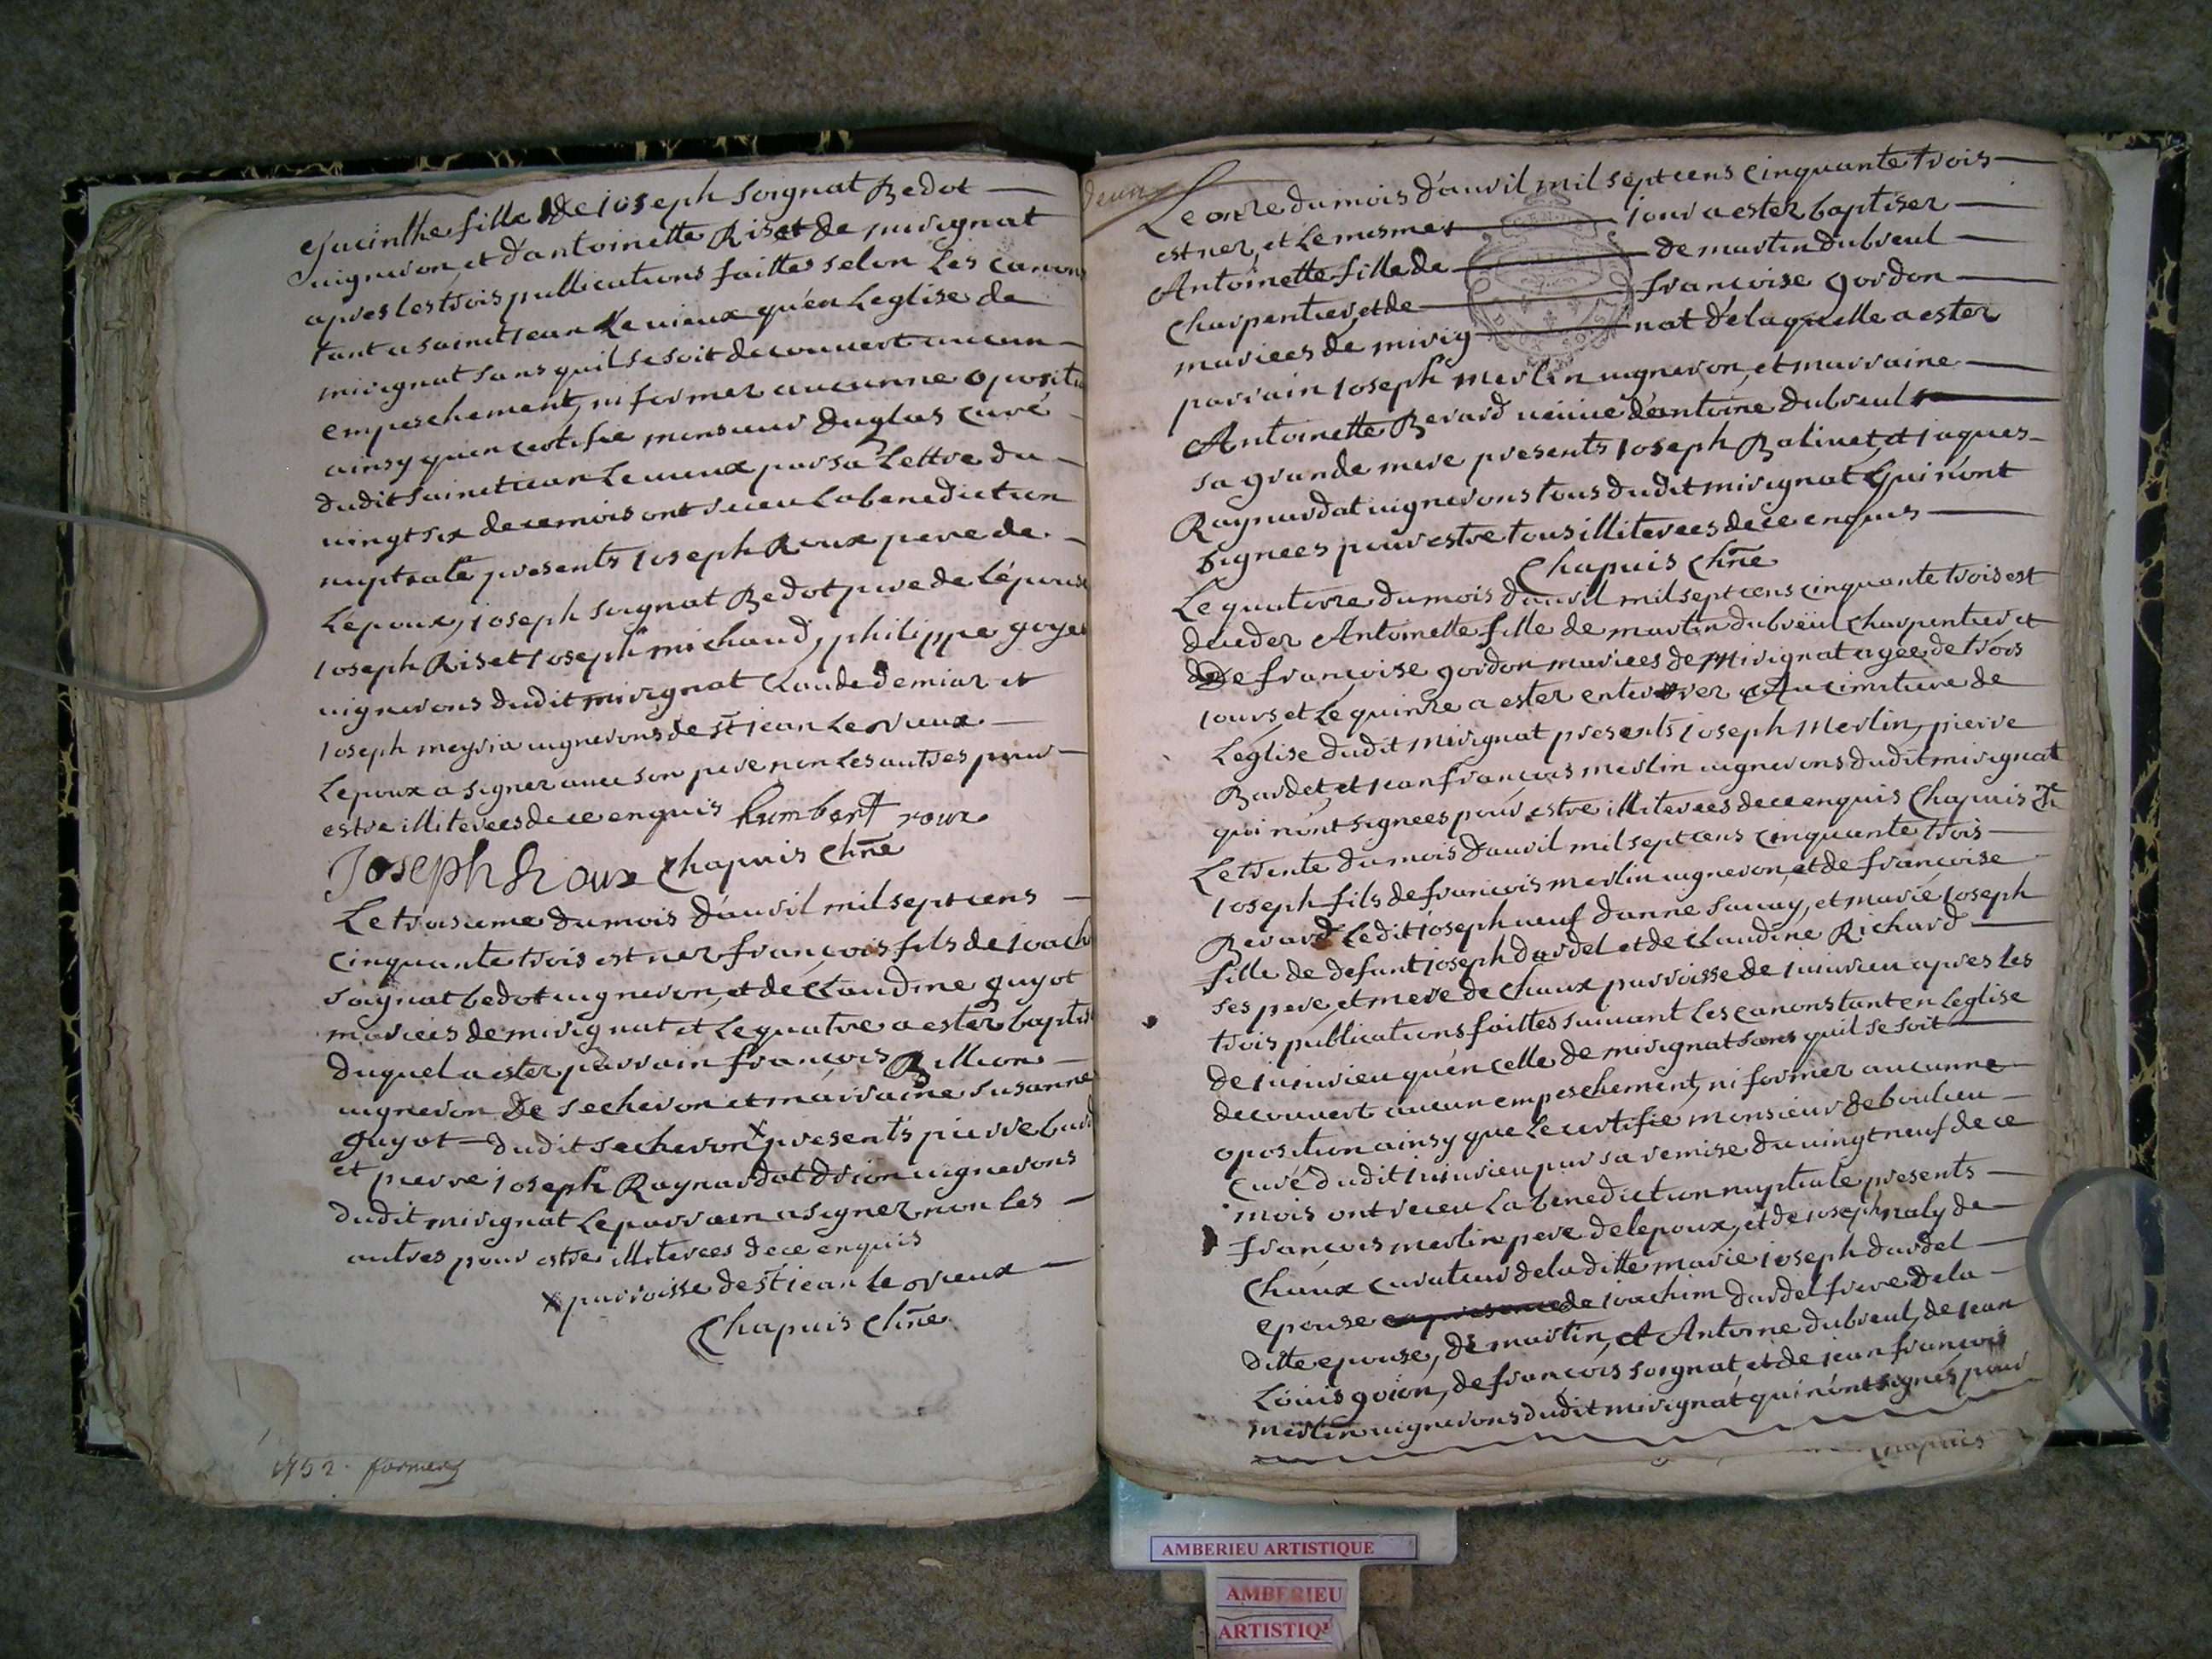 hjacinthe fille de joseph soignat Bedot
uigneron, et d'antoinette Riset de mirignat
apres les trois publications faittes selon les canons
tant a sainct jean le uieux qu'en Leglise de
mirignat sans quil se soit decouuert aucun
empeschement, ni former aucunne oposition
ainsy quen certifie monsieur duglas curé
dudit sainct jean Le uieux par sa Lettre du
uingt six de ce mois ont receu La benediction
nuptiale presents joseph Roux pere de
Lépoux, joseph soignat Bedot pere de Lépouse
joseph Riset joseph michaud, philippe goyet
uignerons dudit mirignat Claude demiaz et
joseph meyria uignerons de st jean Le vieux
Lépoux a signer auec son pere non Les autres pour
estre illiterees de ce enquis humbert roux
Joseph Roux Chapuis Chne
Le troisieme du mois d'auril mil sept cens
cinquante trois est nez françois fils de joach
soignat bedot uigneron, et de Claudine guyot
mariees de mirignat et Le quatre a ester baptis
duquel a ester parrain françois Billion
uigneron de secheron et marraine susanne
guyot dudit secheron x presents pierre bard
et pierre joseph Raynardat drion uignerons
dudit mirignat Le parrain a signez non les
autres pour estre illiterees de ce enquis
x parroisse de st jean le vieux
Chapuis Chne
1752. formery
deux
Le onze du mois d'auril mil sept cens cinquante trois
est nez, et Le mesmes jour a ester baptiser
Antoinette fille de de martin dubreul
Charpentier et de francoise gordon
mariees de mirig nat de laquelle a ester
parrain joseph merlin uigneron, et marraine
Antoinette Berard ueuue d'antoine dubreul
sa grande mere presents joseph Balivet, et jaques
Raynardat uignerons tous dudit mirignat qui n'ont
signees pour estre tous illiterees de ce enquis
Chapuis Chne
Le quatorze du mois d'auril mil sept cens cinquante trois est
deceder Antoinette fille de martin dubreul charpentier et
de françoise gordon mariees de mirignat agée de trois
jours et Le quinze a ester enterrer Au cimitiere de
Léglise dudit mirignat presents joseph Merlin, pierre
Bardet, et jean françois merlin uignerons dudit mirignat
qui n'ont signees pour estre illiterees de ce enquis Chapuis Chne
Le trente du mois d'auril mil sept cens cinquante trois
joseph fils de francois merlin uigneron, et de francoise
Berard Ledit joseph ueuf danne sauay, et marie joseph
fille de defunt joseph dardel et de Claudine Richard
ses pere, et mere de chaux parroisse de juiurieu apres les
trois publications faittes suiuant Les canons tant en Leglise
de juiurieu qu'en celle de mirignat sans quil se soit
decouuert aucun empeschement, ni former aucunne
oposition ainsy que Le certifie monsieur de boulieu
Curé dudit juiurieu par sa remise du uingt neuf de ce
mois ont receu La benediction nuptiale presents
francois merlin pere de lepoux, et de joseph naly de
Chaux curateur de la ditte marie joseph dardel
epouse de joachim dardel frere de la
ditte epouse, de martin, et Antoine dubreul, de jean
Louis goion, de francois soignat, et de jean francois
merlin uignerons dudit mirignat qui n'ont signés pour
Chapuis
AMBERIEU ARTISTIQUE
AMBERIEU
ARTISTIQ